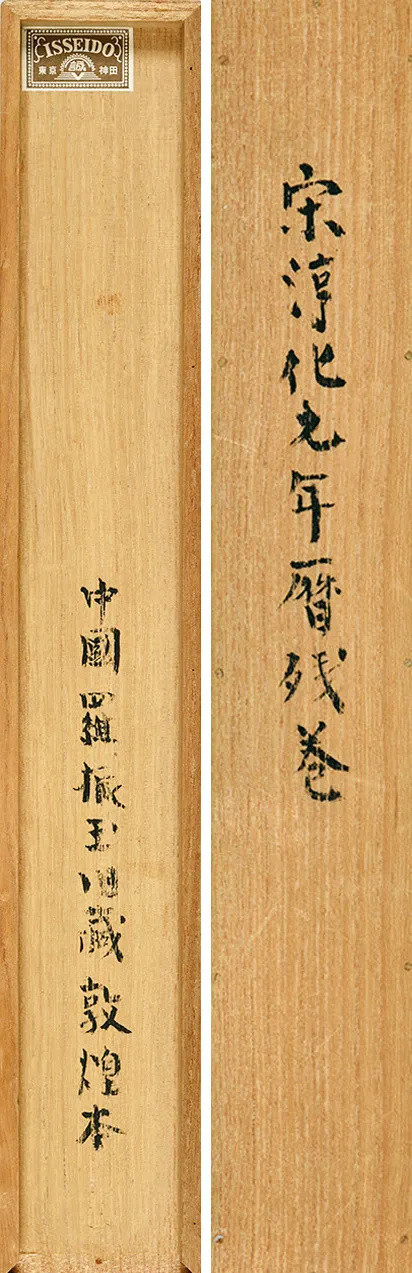 ISSEIDO
東京 神田
中國羅振玉旧藏敦煌本
宋淳化元年暦残巻